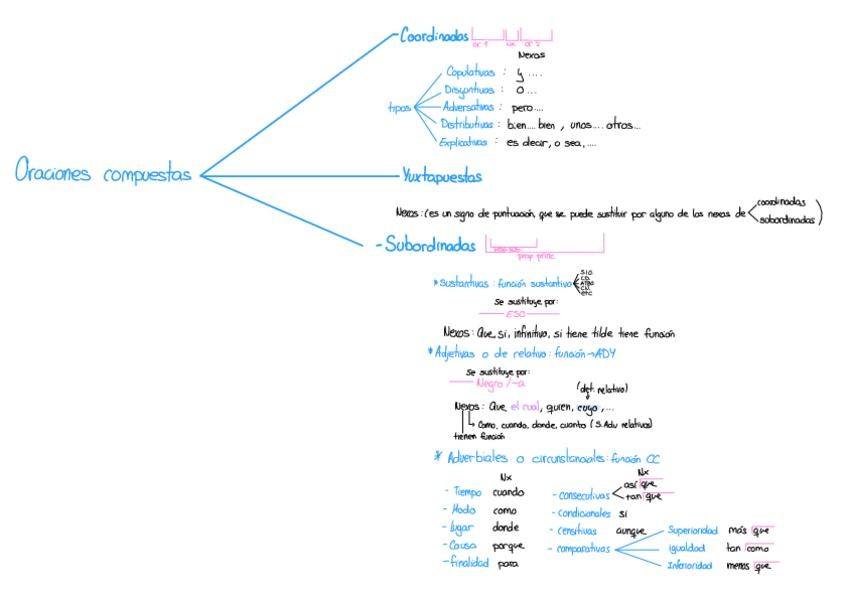 - Coordinadas
or 1 nx or 2
Nexos
Copulativas : y ....
Disyuntivas : o ...
tipos Adversativas : pero....
Distributivas : bien.... bien , unos.... otros...
Explicativas : es decir, o sea,....
Oraciones compuestas
- Yuxtapuestas
Nexos : (es un signo de puntuación, que se puede sustituir por alguno de los nexos de coordinadas
subordinadas )
- Subordinadas
prop princ
* Sustantivas : función sustantivo S.IO.
C.D.
ATRB
C.N.
etc
Se sustituye por:
ESO
Nexos : Que, si, infinitivo, si tiene tilde tiene función
* Adjetivas o de relativo : función → ADY
Se sustituye por:
Negro /-a
(det. relativo)
Nexos : Que, el cual, quien, cuyo ,...
Como, cuando, donde, cuanto ( S.Adv relativos)
tienen función
* Adverbiales o circunstanciales : función CC
Nx Nx
- Tiempo cuando
- Modo como
- Lugar donde
- Causa porque
- finalidad para
- consecutivas así que
tan que
- condicionales si
- censitivas aunque
- comparativas
Superioridad más que
igualdad tan como
Inferioridad menos que